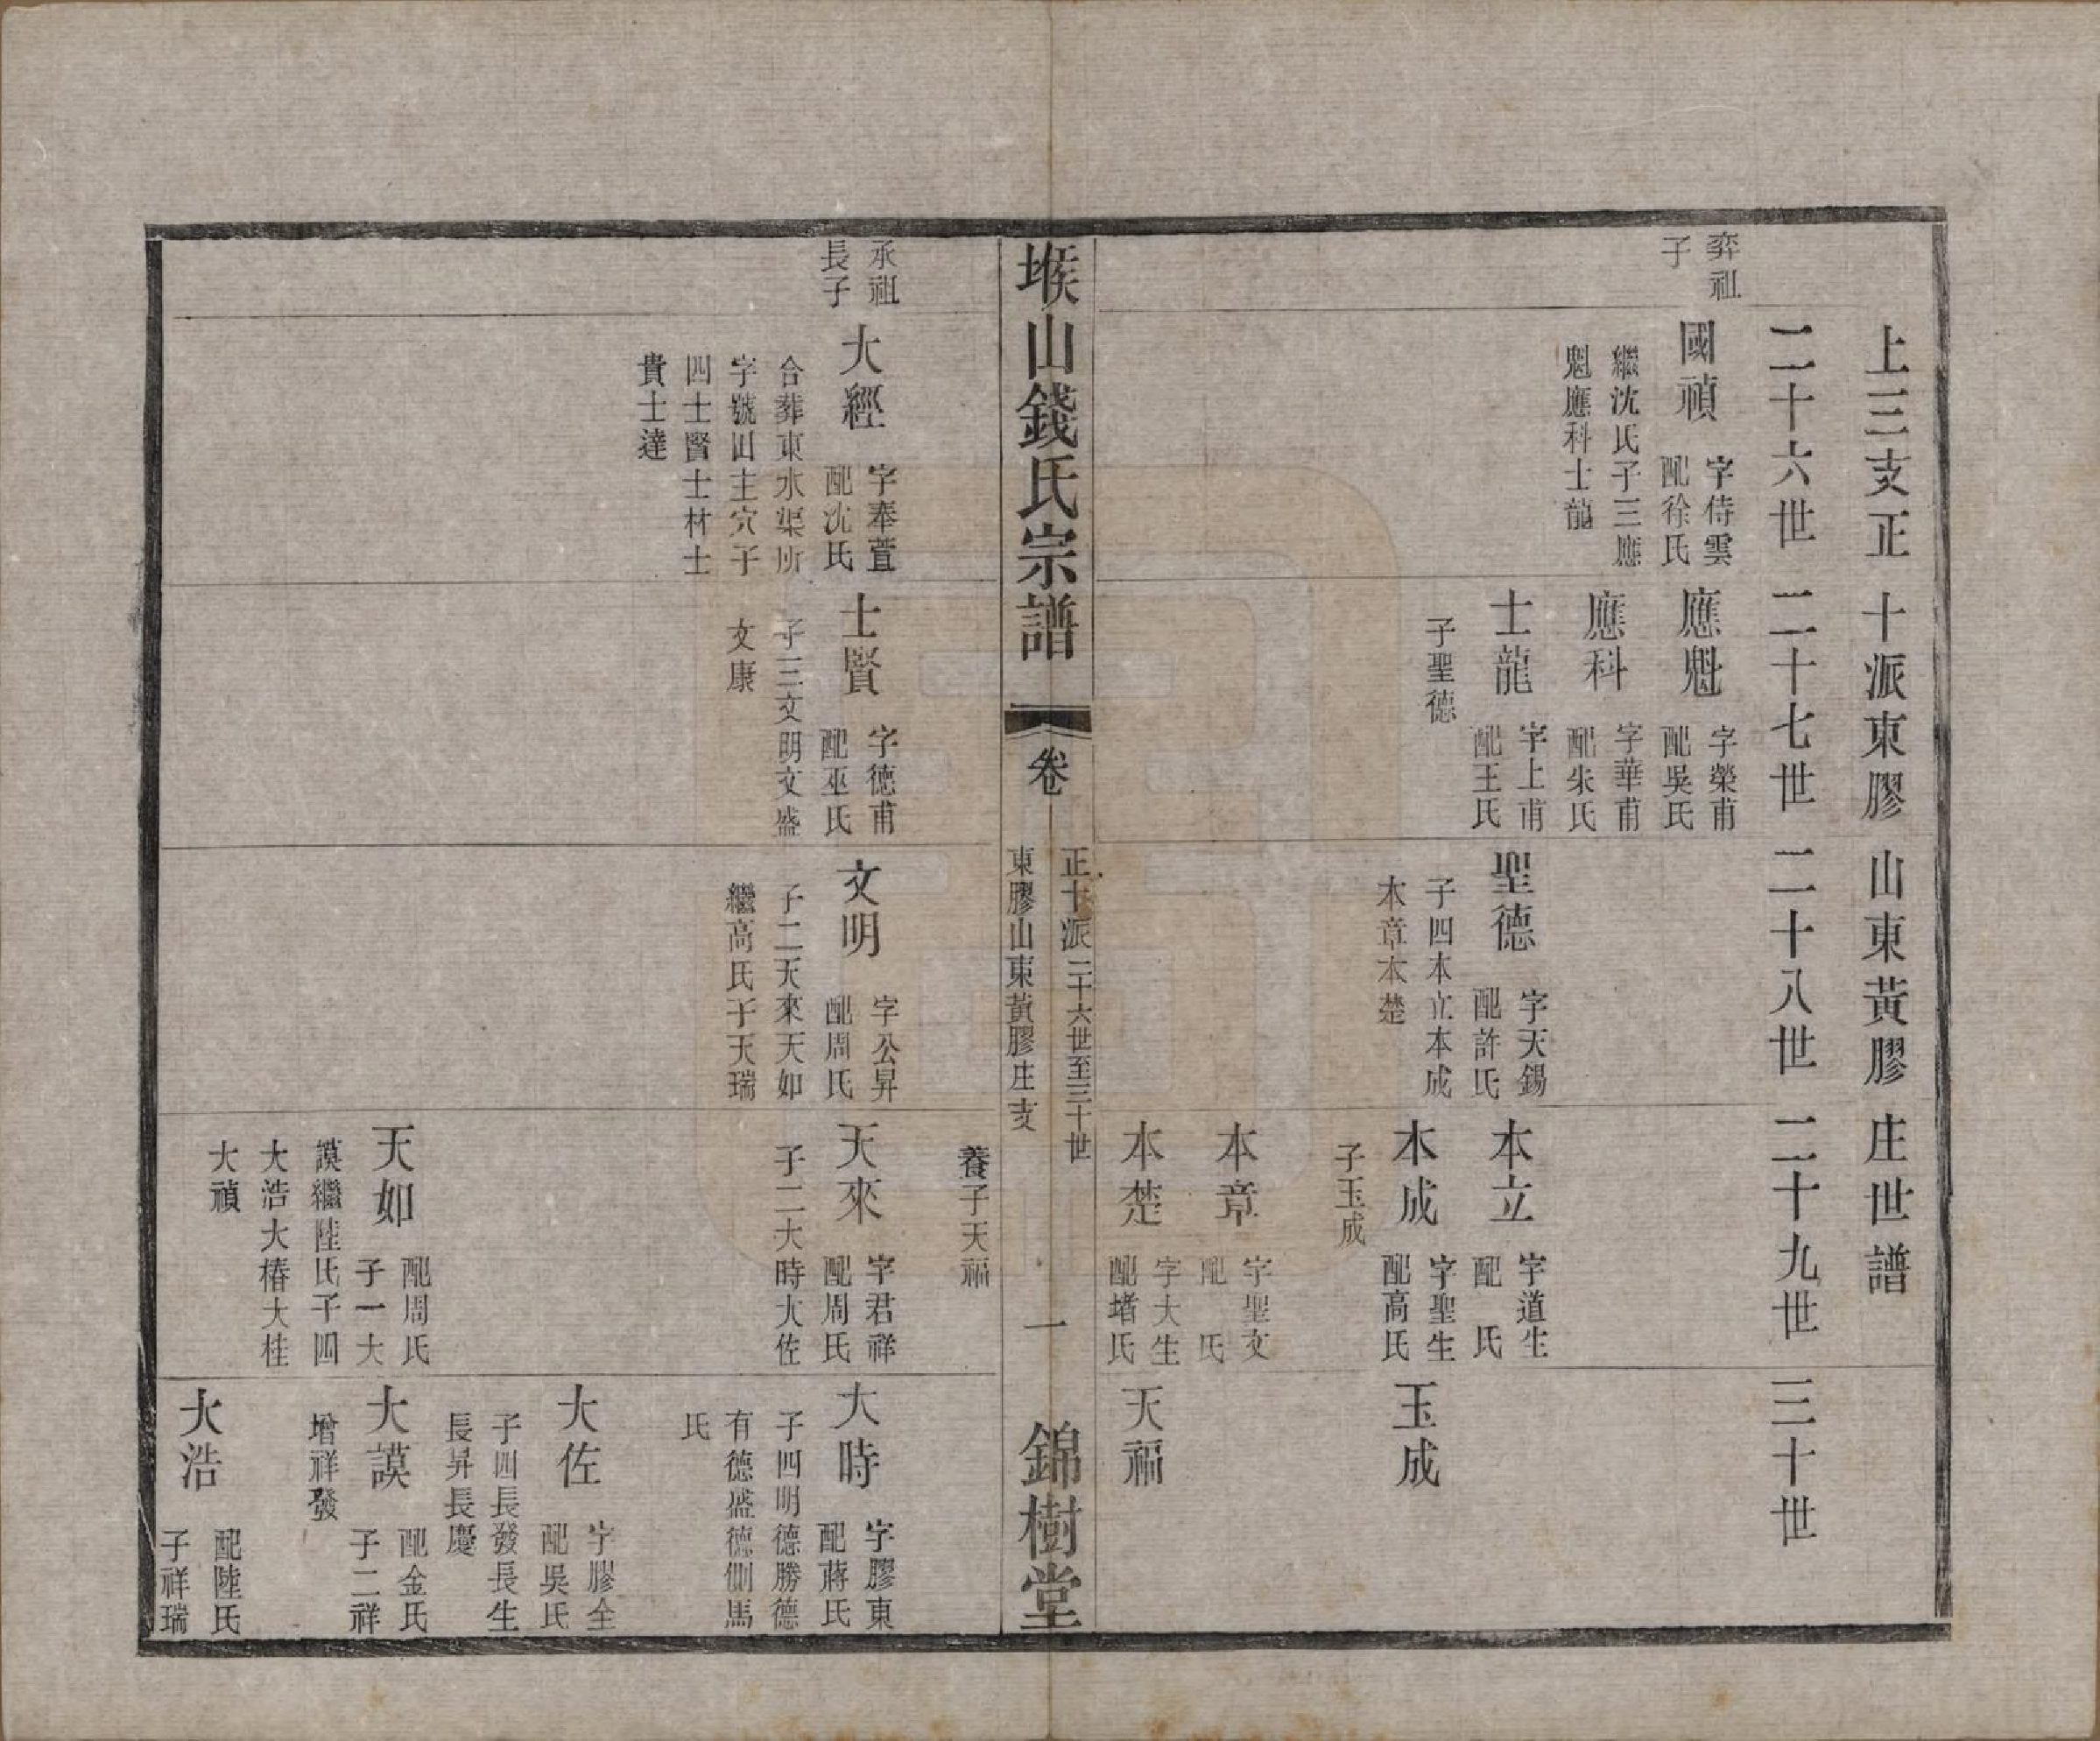 上三支正十派東膠山東黃膠庄世譜
二十六世
二十七世
二十八世
二十九世
三十世
弈祖
子
國禎
字侍雲
配徐氏
繼沈氏子三應
魁應科士龍
應魁
字榮甫
配吳氏
應科
字華甫
配朱氏
士龍
字上甫
配王氏
子聖德
聖德
字天錫
配許氏
子四本立本成
本章本楚
本立
字道生
配　氏
本成
字聖生
配高氏
子玉成
本章
字聖文
配　氏
本楚
字大生
配堵氏
養子天福
玉成
天福
堠山錢氏宗譜
卷
正十派二十六世至三十世
東膠山東黃膠庄支
一
錦樹堂
承祖
長子
大經
字奉萱
配沈氏
合葬東水渠所
字號山主穴子
四士賢士材士
貴士達
士賢
字德甫
配巫氏
子三文明文盛
文康
文明
字公昇
配周氏
子二天來天如
繼高氏子天瑞
天來
字君祥
配周氏
子二大時大佐
天如
配周氏
子一大
謨繼陸氏子四
大浩大椿大桂
大禎
大時
字膠東
配蔣氏
子四明德勝德
有德盛德側馬
氏
大佐
字膠全
配吳氏
子四長發長生
長昇長慶
大謨
配金氏
子二祥
增祥發
大浩
配陸氏
子祥瑞